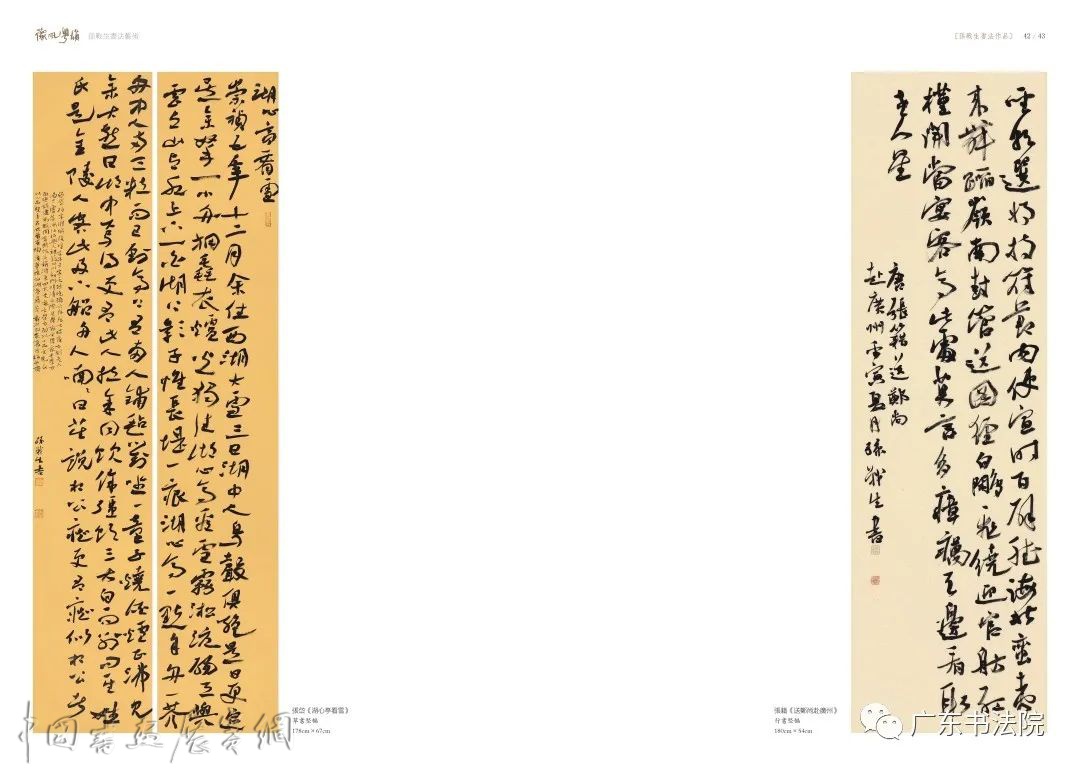 豫風粵韻 孫戰生書法藝術
【孫戰生書法作品】 42 / 43
湖心亭看雪
崇禎五年十二月余住西湖大雪三日湖中人鳥聲俱絕是日更定
是余拏一小舟擁毳衣爐火獨往湖心亭看雪霧凇沆碭天與
雲與山與水上下一白湖上影子惟長堤一痕湖心亭一點與舟一芥
舟中人兩三粒而已到亭上有兩人鋪氈對坐一童子燒酒爐正沸見
余大喜曰湖中焉得更有此人拉余同飲余強飲三大白而別問其姓
氏是金陵人客此及下船舟人喃喃曰莫說相公癡更有癡似相公者
孫戰生書
聖朝選將持符節內使宣時百辟聽海北蠻夷
來舞蹈嶺南封管送圖經白鷴飛繞迎官舫紅
槿開當宴客亭此處莫言多瘴癘天邊看取
老人星
唐張籍送鄭尚
赴廣州壬寅夏月孫戰生書
張岱《湖心亭看雪》
草書豎幅
178cm×67cm
張籍《送鄭尚赴廣州》
行書豎幅
180cm×54cm
中國書法展覽網
广东书法院